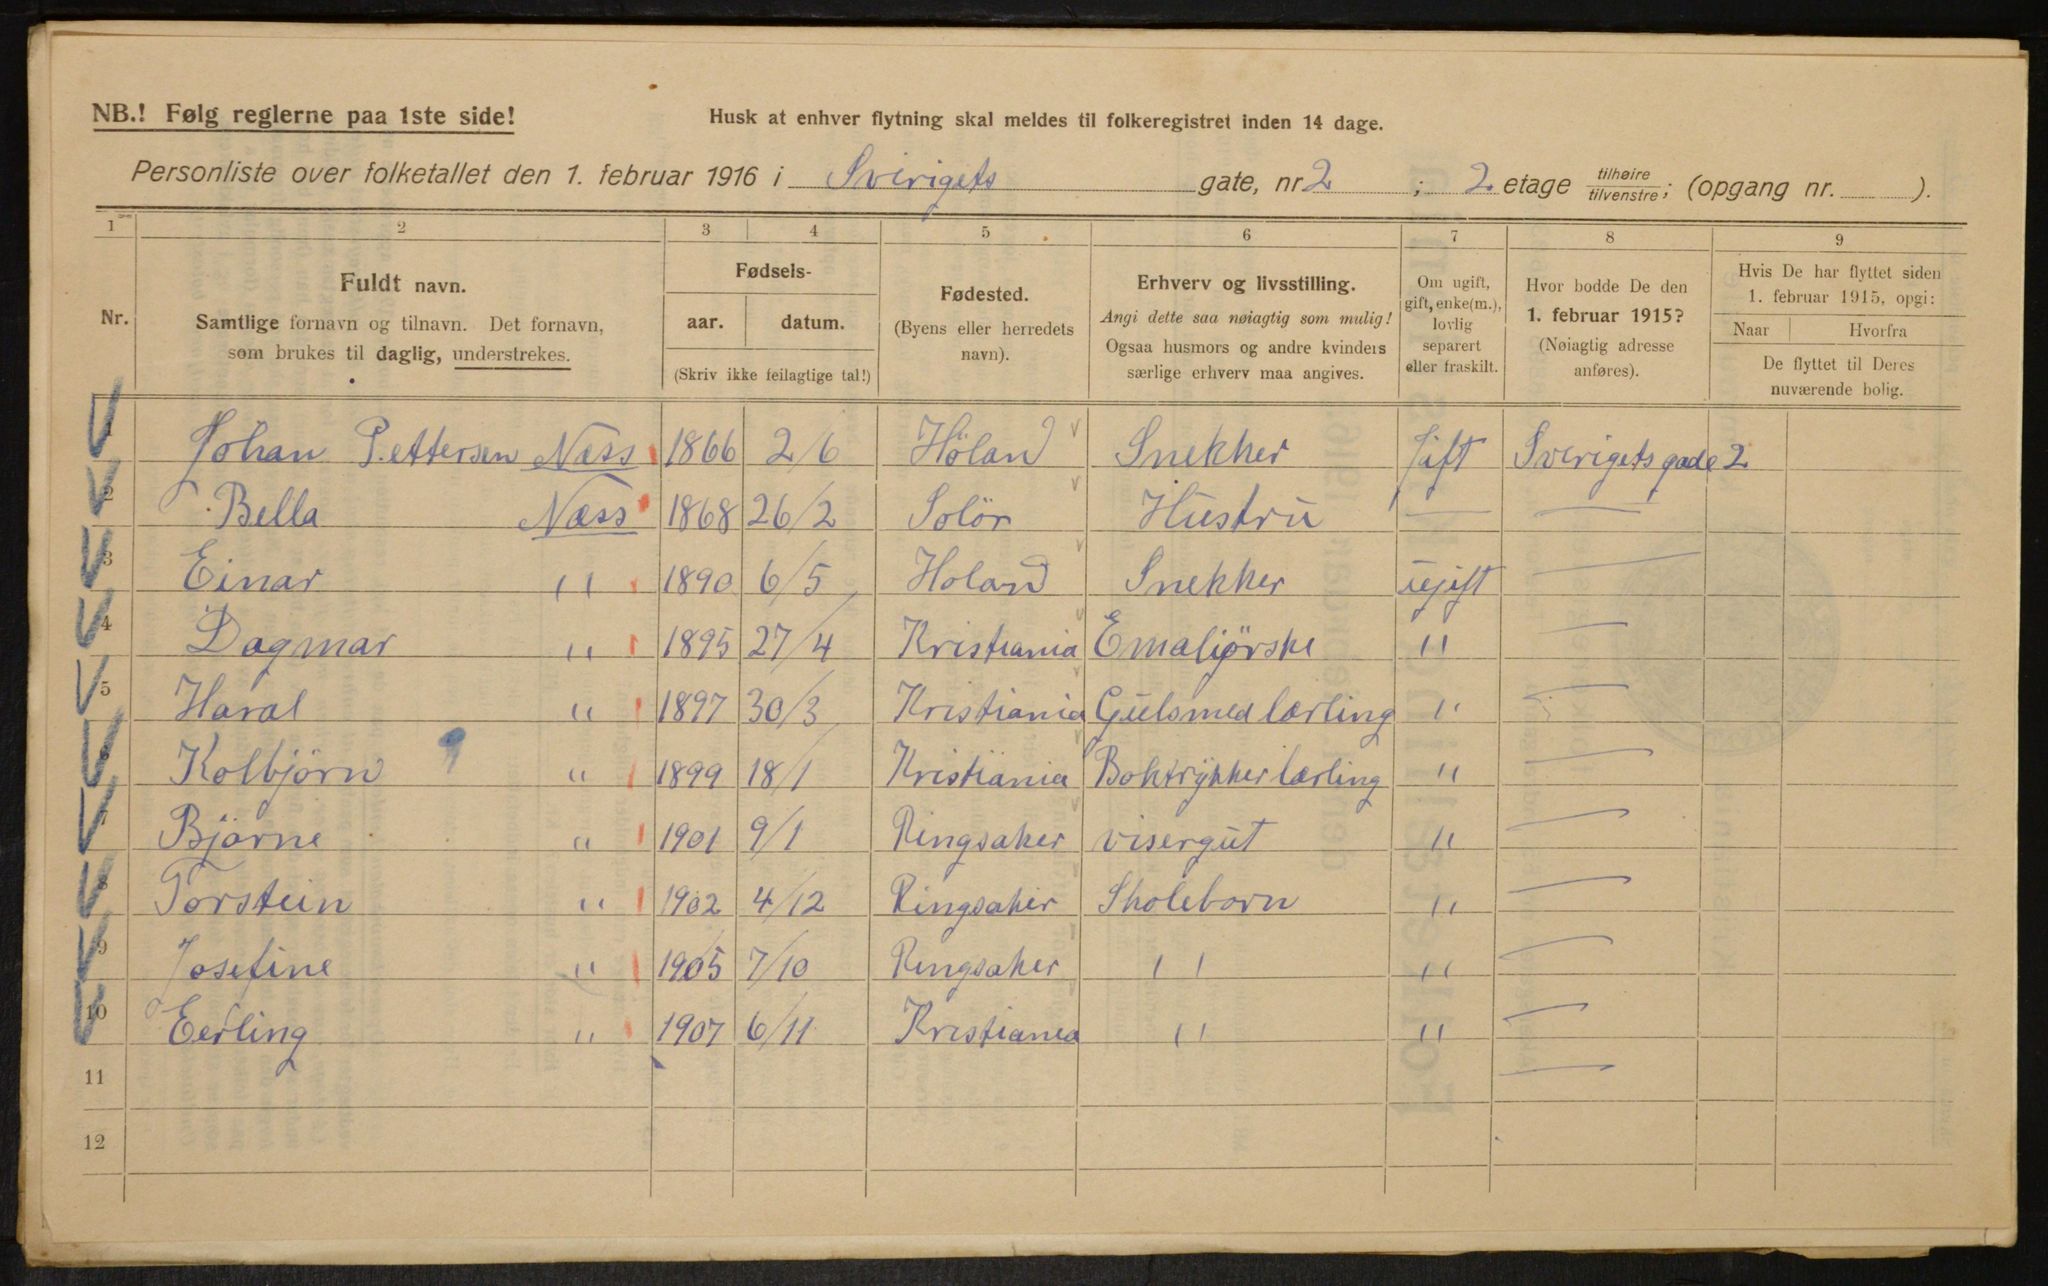 NB.! Følg reglerne paa 1ste side!
Husk at enhver flytning skal meldes til folkeregistret inden 14 dage.
Personliste over folketallet den 1. februar 1916 i Sverigets gate, nr 2 ; 2 etage tilhøire/tilvenstre; (opgang nr. ).
1 2 3 4 5 6 7 8 9
Nr.
Fuldt navn.
Samtlige fornavn og tilnavn. Det fornavn,
som brukes til daglig, understrekes.
Fødsels-
aar. datum.
(Skriv ikke feilagtige tal!)
Fødested.
(Byens eller herredets
navn).
Erhverv og livsstilling.
Angi dette saa nøiagtig som mulig!
Ogsaa husmors og andre kvinders
særlige erhverv maa angives.
Om ugift,
gift, enke(m.),
lovlig
separert
eller fraskilt.
Hvor bodde De den
1. februar 1915?
(Nøiagtig adresse
anføres).
Hvis De har flyttet siden
1. februar 1915, opgi:
Naar Hvorfra
De flyttet til Deres
nuværende bolig.
1 Johan Pettersen Næss 1866 2/6 Höland Snekker Gift Sverigets gade 2
2 Bella Næss 1868 26/2 Solör Hustru — —
3 Einar " 1890 6/5 Holand Snekker ugift —
4 Dagmar " 1895 27/4 Kristiania Emaljörske " —
5 Haral " 1897 30/3 Kristiania Gulsmed lærling " —
6 Kolbjörn " 1899 18/1 Kristiania Boktrykker lærling " —
7 Bjarne " 1901 9/1 Ringsaker visergut " —
8 Torstein " 1902 4/12 Ringsaker Skolebarn " —
9 Josefine " 1905 7/10 Ringsaker " " —
10 Eerling " 1907 6/11 Kristiania " " —
11 —
12